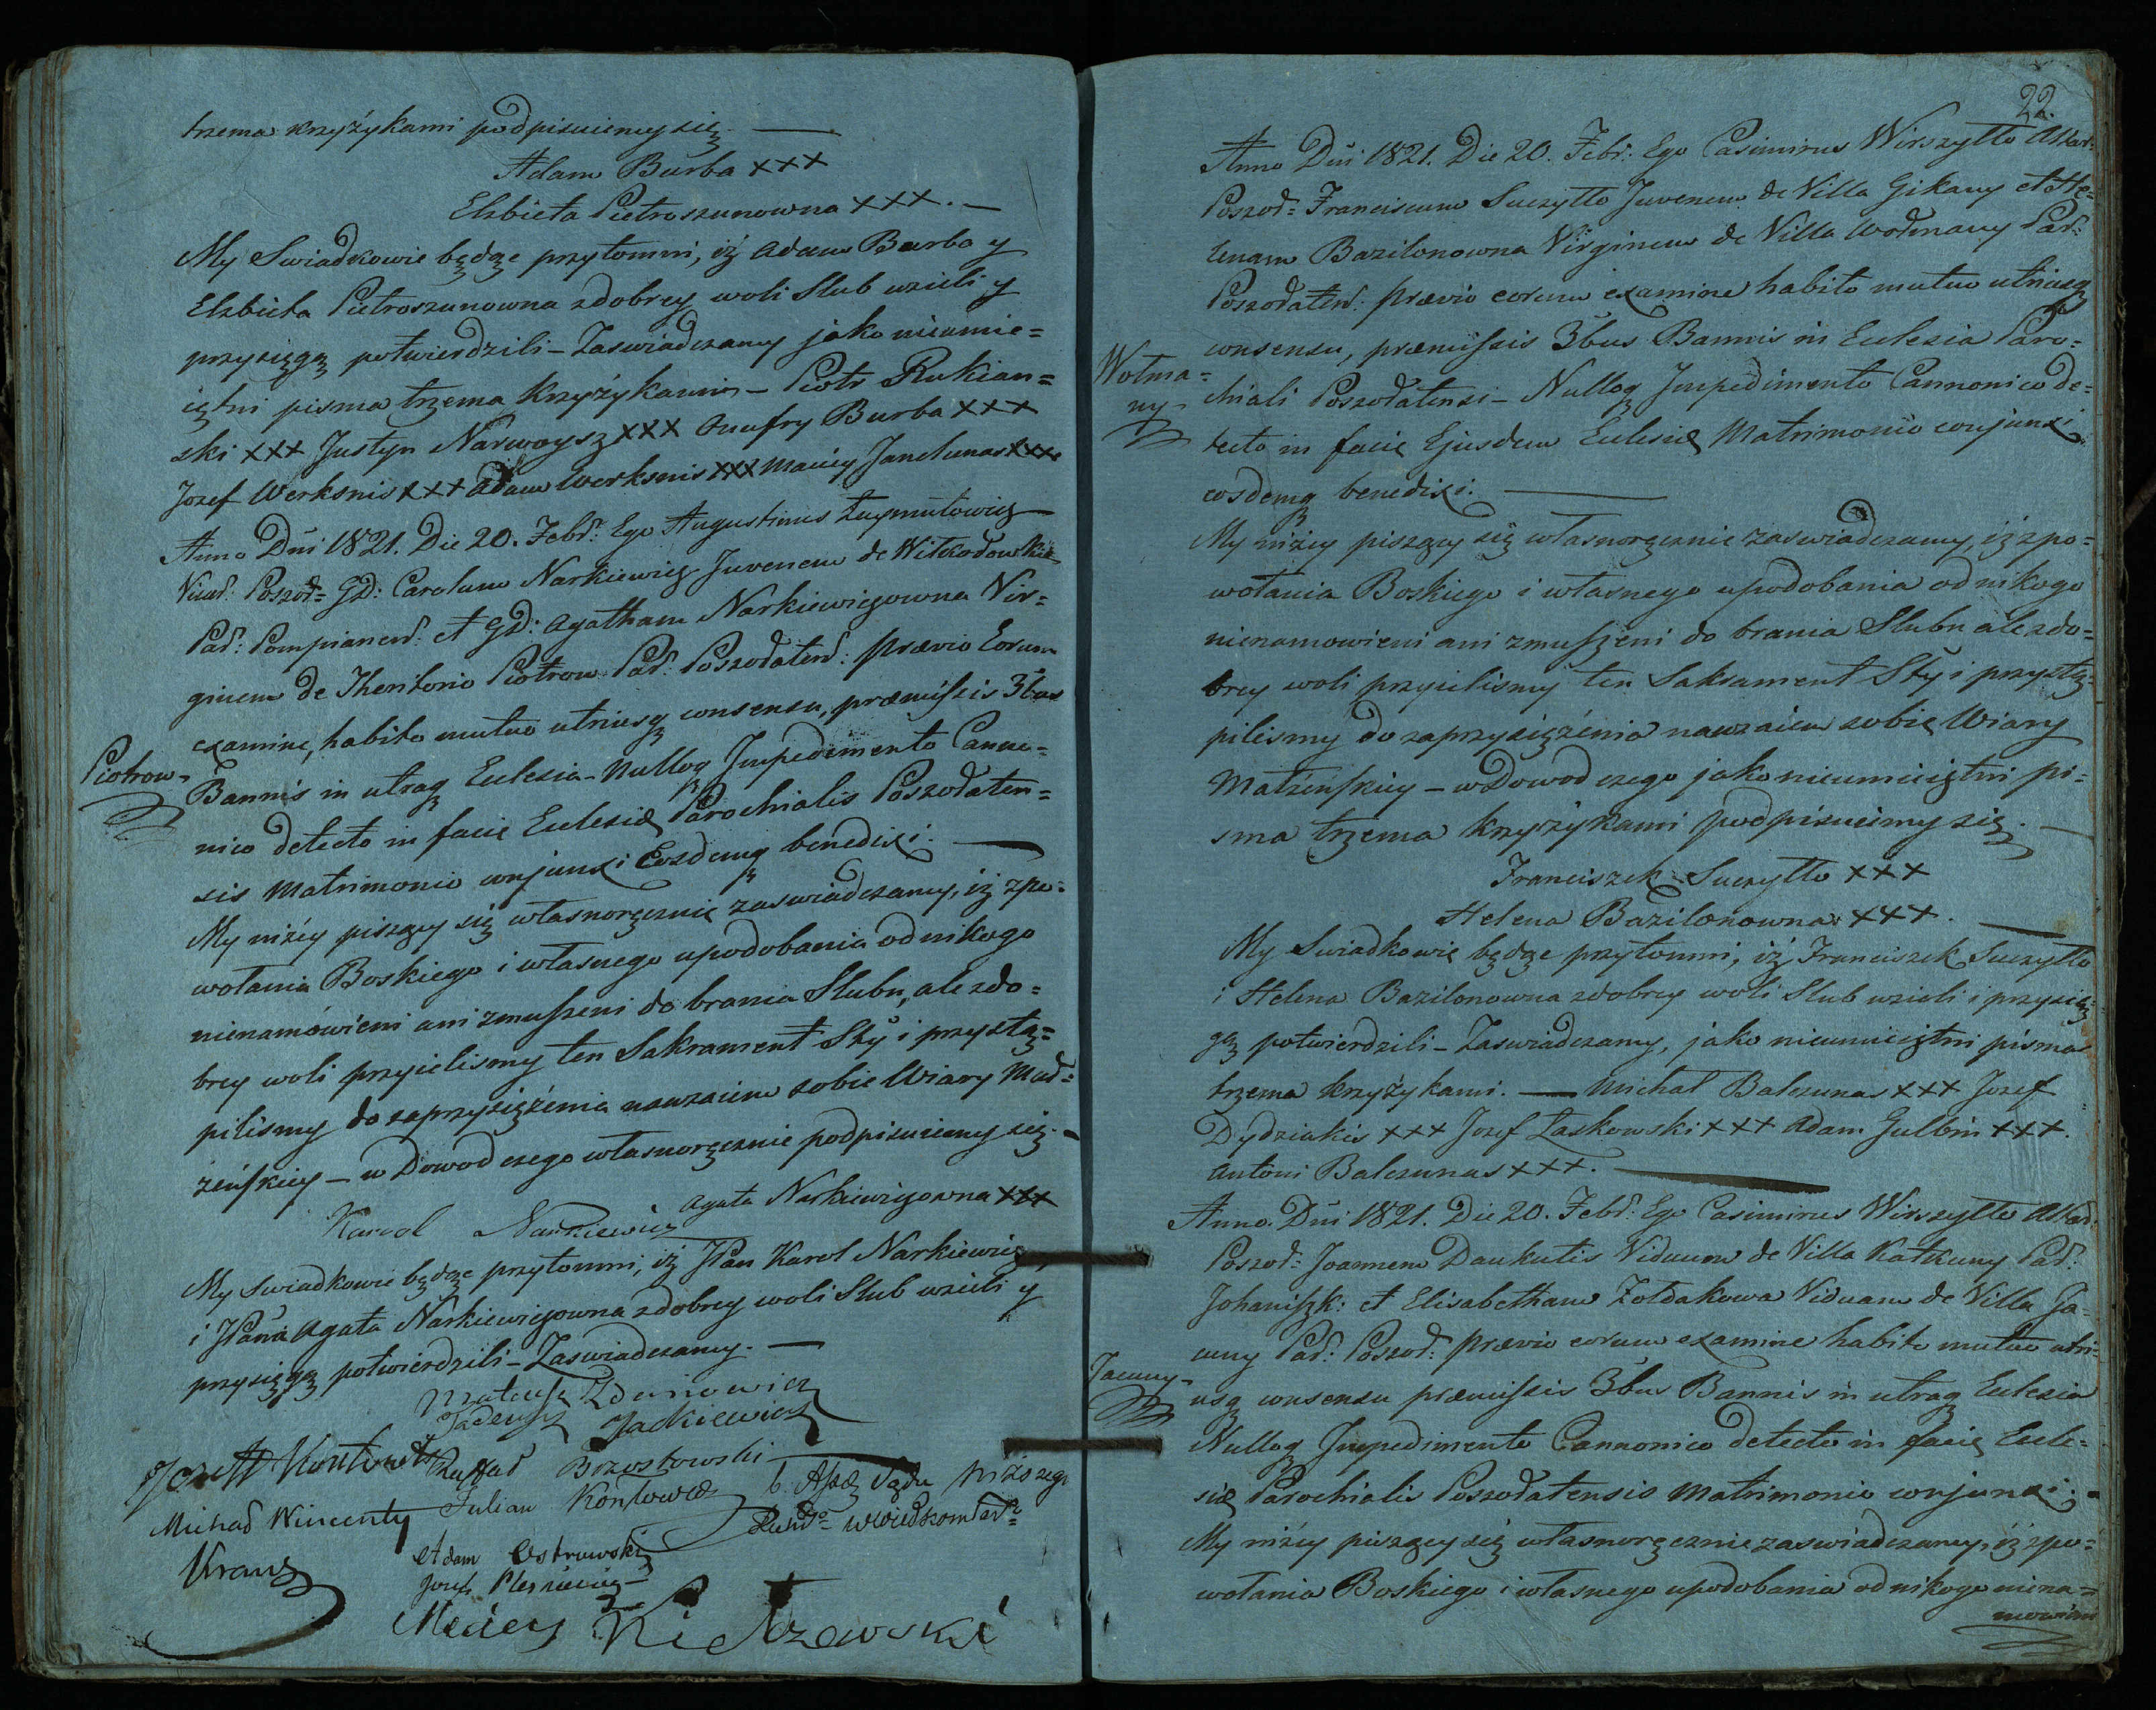 trzema krzyżykami podpisuiemy się. —
Adam Burba +++
Elzbieta Pietroszunowna +++. —
My Swiadkowie będąc przytomni, iż Adam Burba y
Elzbieta Pietroszunowna zdobrey woli Slub wzieli y
przysięgą potwierdzili – Zaswiadczamy jako nieumie=
iętni pisma trzema krzyżykami – Piotr Rukian=
ski +++ Justyn Narwoysz XXX Onufry Burba +++
Jozef Werksnis +++ Adam Werksnis XXX Maciey Jandunas XXX
Anno Dñi 1821. Die 20. Febr: Ego Augustinus
Poszoł= GD: Carolum Narkiewicz Juvenem de
Par: Pompianen: et GD: Agatham Narkiewiczowna Vir=
ginem de Theritorio Piotrow Par: Poszołaten: prævio Eorum
examine, habito mutuo utriusq consensu, præmissis 3bus
Piotrow-
Bannis in utraq Eclesia – Nulloq Impedimento Canno=
nico detecto in facie Eclesiæ Parochialis Poszołaten=
sis Matrimonio conjunxi Eosdemq benedixi. —
My niżey piszący się własnoręcznie zaswiadczamy, iż zpo=
wołania Boskiego i własnego upodobania od nikogo
nienamówieni ani zmuszeni do brania Slubu, ale zdo=
brey woli przyielismy ten Sakrament Sty i przystą=
pilismy do zaprzysiężenia nawzaiem sobie Wiary Mał=
żenskiey – w Dowod czego własnoręcznie podpisuiemy się. –
Agata Narkiewiczowna XXX
Karol Narkiewicz
My Swiadkowie będąc przytomni, iż JPan Karol Narkiewicz,
i JPana Agata Narkiewiczowna zdobrey woli Slub wzieli y
przysięgą potwierdzili – Zaswiadczamy. —
Mateusz
Tadeusz Jackiewicz
Jozeff
Brzostowski
Michał Wincenty Julian Kontowcz b. Sądu Niższego
Kranz
Adam Ostrowski
Jozef
Maciey
22.
Anno Dñi 1821. Die 20. Febr: Ego Casimirus Wirszyłło
Poszoł= Franciscum Suczyłło Juvenem de Villa Gikany et He=
lenam Bazilonowna Virginem de Villa Wołmany Par:
Poszołaten: prævio eorum examine habito mutuo utriusq
consensu, præmissis 3bus Bannis in Eclesia Paro=
Wołma=
ny-
chiali Poszołatensi – Nulloq Impedimento Cannonico de=
tecto in facie Ejusdem Eclesiæ Matrimonio conjunxi
eosdemq benedixi. —
My niżey piszący się własnoręcznie zaswiadczamy, iż zpo=
wołania Boskiego i własnego upodobania od nikogo
nienamowieni ani zmuszeni do brania Slubu ale zdo=
brey woli przyielismy ten Sakrament Sty i przystą=
pilismy do zaprzysiężenia nawzaiem sobie Wiary
Małżenskiey – w Dowod czego jako nieumieiętni pi=
sma trzema krzyżykami podpisuiemy się. —
Franciszek Suczyłło +++
Helena Bazilonowna +++. —
My Swiadkowie będąc przytomni, iż Franciszek Suczyłło
i Helena Bazilonowna zdobrey woli Slub wzieli i przysię=
gą potwierdzili – Zaswiadczamy, jako nieumieiętni pisma
trzema krzyżykami. — Michał Balczunas +++ Jozef
Dydziakis +++ Jozef Laskowski +++ Adam Gulbin +++.
Antoni Balczunas +++. —
Anno Dñi 1821. Die 20. Febr: Ego Casimirus Wirszyłło
Poszoł= Joannem Daukutis Viduum de Villa Katkuny Par:
Johaniszk: et Elisabetham Zołdakowa Viduam de Villa Ja=
cuny Par: Poszoł: prævio eorum examine habito mutuo utri=
Jacuny-
usq consensu præmissis 3bus Bannis in utraq Eclesia
Nulloq Impedimento Cannonico detecto in facie Ecle=
siæ Parochialis Poszołatensis Matrimonio conjunxi. –
My niżey piszący się własnoręcznie zaswiadczamy, iż zpo=
wołania Boskiego i własnego upodobania od nikogo niena=
mowieni